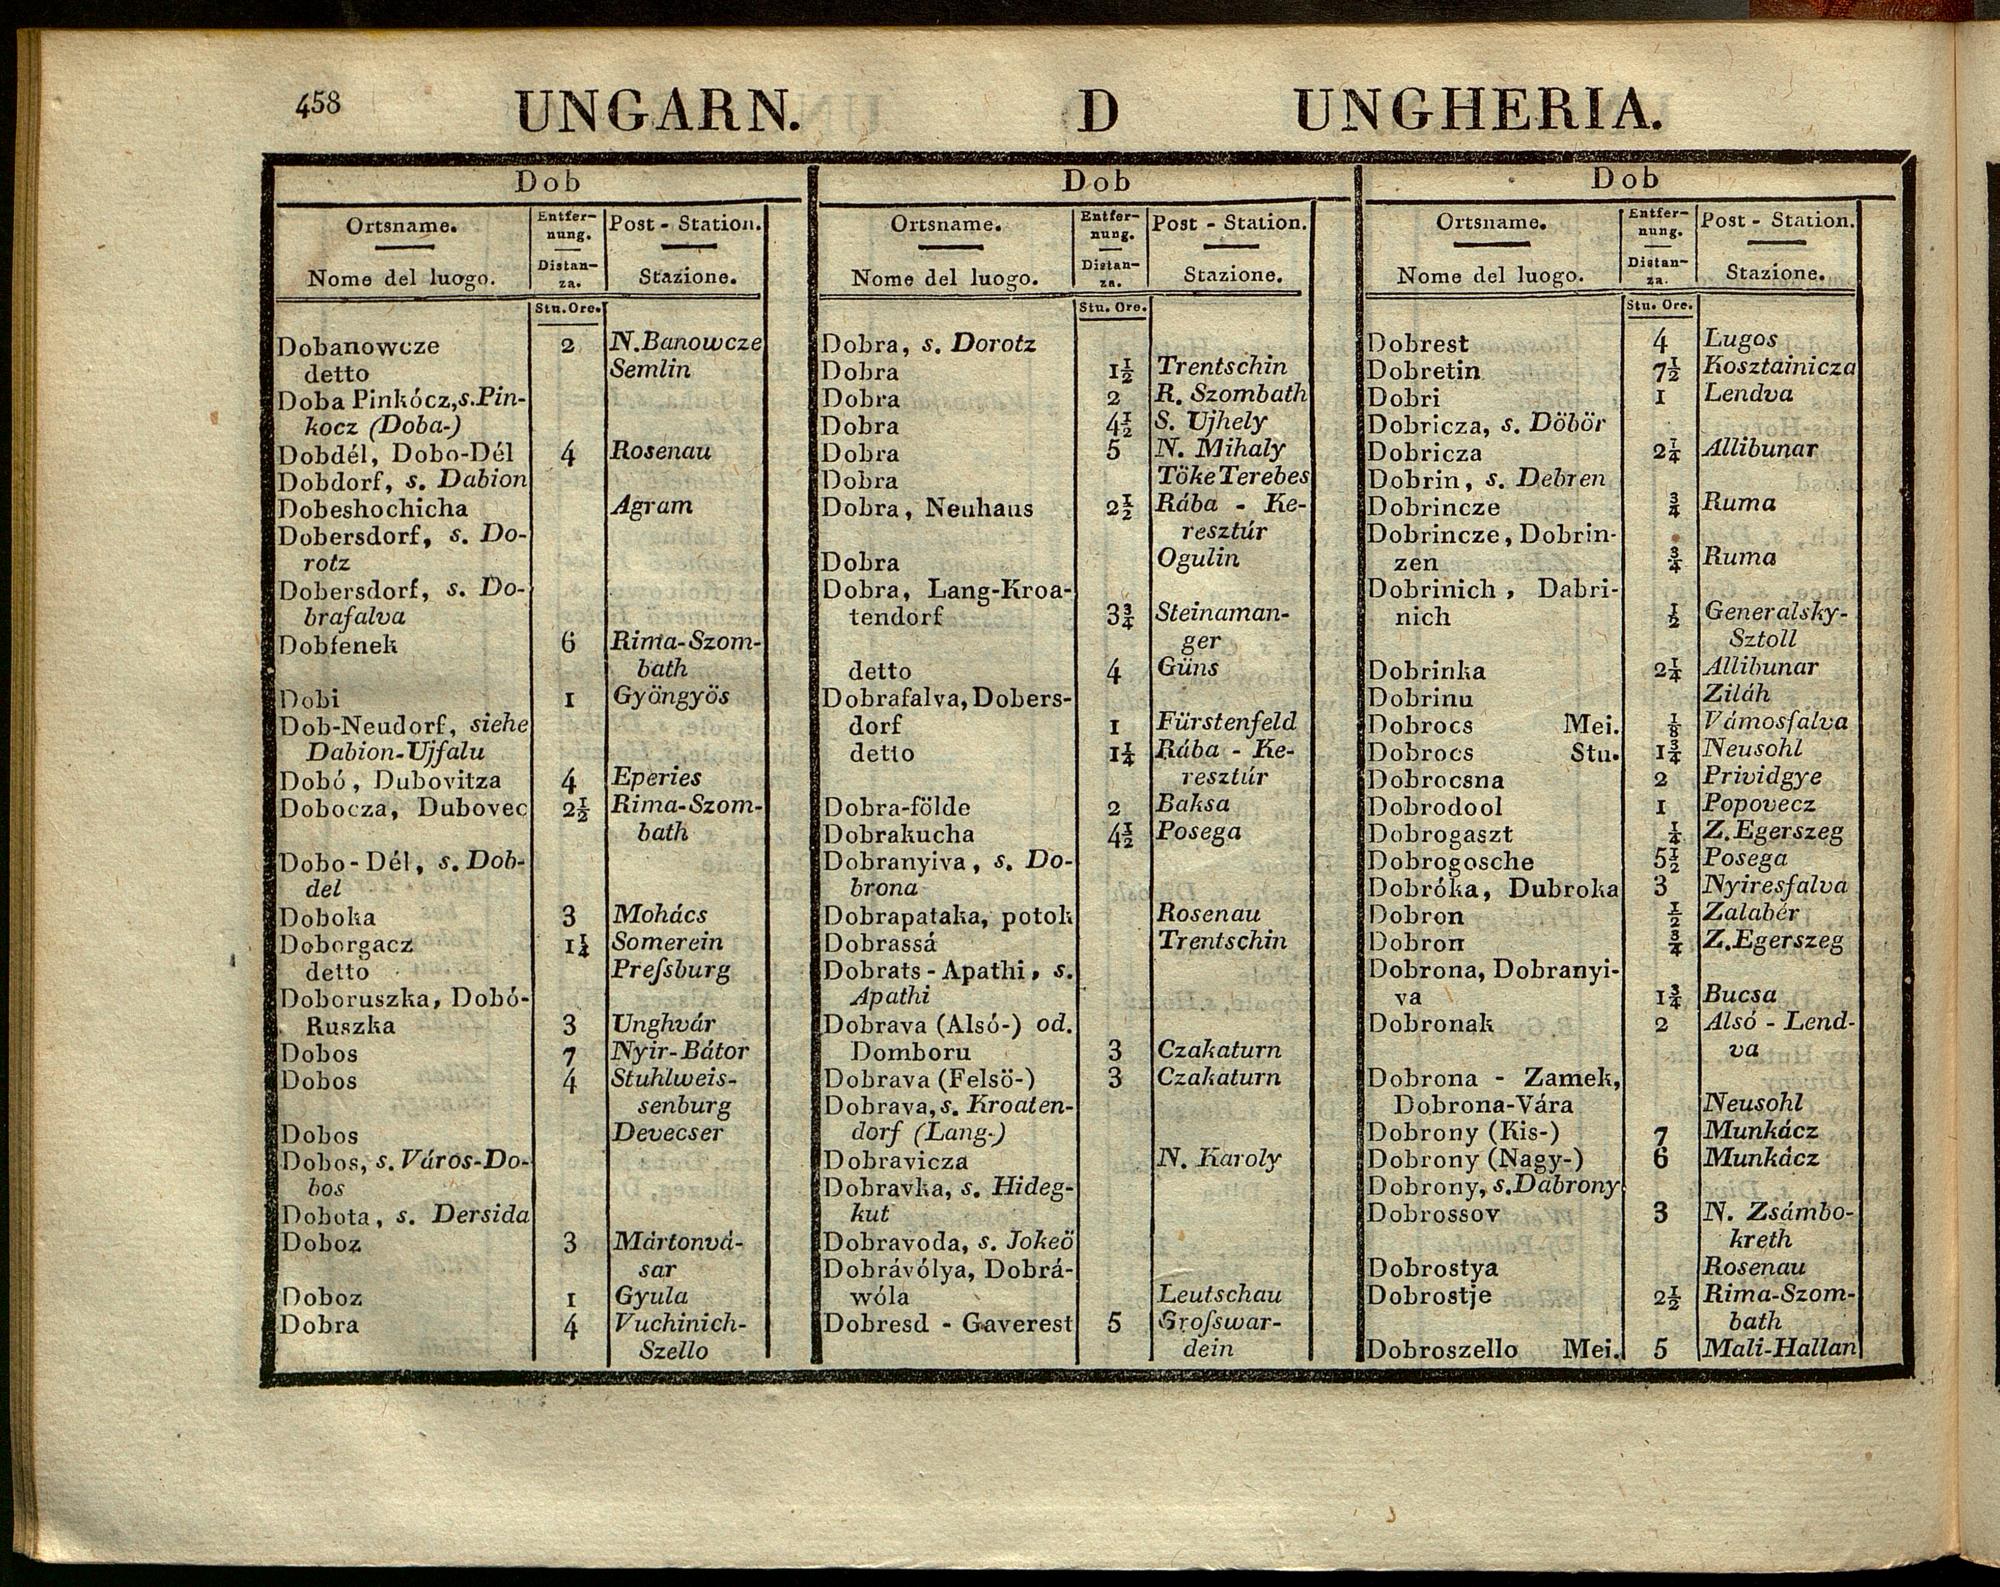 458 UNGARN. D UNGHERIA.
Dob
Ortsname. Entfer- Post - Station.
nung.
Distan-
Nome del luogo. za. Stazione.
Stu. Ore.
Dobanowcze 2 N. Banowcze
detto Semlin
Doba Pinkócz, s. Pin-
kocz (Doba-)
Dobdél, Dobo-Dél 4 Rosenau
Dobdorf, s. Dabion
Dobeshochicha Agram
Dobersdorf, s. Do-
rotz
Dobersdorf, s. Do-
brafalva
Dobfenek 6 Rima-Szom-
bath
Dobi 1 Gyöngyös
Dob-Neudorf, siehe
Dabion-Ujfalu
Dobó, Dubovitza 4 Eperies
Dobocza, Dubovec 2½ Rima-Szom-
bath
Dobo-Dél, s. Dob-
del
Doboka 3 Mohács
Doborgacz 1¼ Somerein
detto Preſsburg
Doboruszka, Dobó-
Ruszka 3 Unghvár
Dobos 7 Nyir-Bátor
Dobos 4 Stuhlweis-
senburg
Dobos Devecser
Dobos, s. Város-Do-
bos
Dobota, s. Dersida
Doboz 3 Mártonvá-
sar
Doboz 1 Gyula
Dobra 4 Vuchinich-
Szello
Dob
Ortsname. Entfer- Post - Station.
nung.
Distan-
Nome del luogo. za. Stazione.
Stu. Ore.
Dobra, s. Dorotz
Dobra 1½ Trentschin
Dobra 2 R. Szombath
Dobra 4½ S. Ujhely
Dobra 5 N. Mihaly
Dobra Töke Terebes
Dobra, Neuhaus 2½ Rába - Ke-
resztúr
Dobra Ogulin
Dobra, Lang-Kroa-
tendorf 3¾ Steinaman-
ger
detto 4 Güns
Dobrafalva, Dobers-
dorf 1 Fürstenfeld
detto 1¼ Rába - Ke-
resztúr
Dobra-földe 2 Baksa
Dobrakucha 4½ Posega
Dobranyiva, s. Do-
brona
Dobrapataka, potok Rosenau
Dobrassá Trentschin
Dobrats - Apathi, s.
Apathi
Dobrava (Alsó-) od.
Domboru 3 Czakaturn
Dobrava (Felsö-) 3 Czakaturn
Dobrava, s. Kroaten-
dorf (Lang-)
Dobravicza N. Karoly
Dobravka, s. Hideg-
kut
Dobravoda, s. Jokeö
Dobrávólya, Dobrá-
wóla Leutschau
Dobresd - Gaverest 5 Groſswar-
dein
Dob
Ortsname. Entfer- Post - Station.
nung.
Distan-
Nome del luogo. za. Stazione.
Stu. Ore.
Dobrest 4 Lugos
Dobretin 7½ Kosztainicza
Dobri 1 Lendva
Dobricza, s. Döbör
Dobricza 2¼ Allibunar
Dobrin, s. Debren
Dobrincze ¾ Ruma
Dobrincze, Dobrin-
zen ¾ Ruma
Dobrinich, Dabri-
nich ½ Generalsky-
Sztoll
Dobrinka 2¼ Allibunar
Dobrinu Ziláh
Dobrocs Mei. ⅛ Vámosfalva
Dobrocs Stu. 1¾ Neusohl
Dobrocsna 2 Prividgye
Dobrodool 1 Popovecz
Dobrogaszt ¼ Z. Egerszeg
Dobrogosche 5½ Posega
Dobróka, Dubroka 3 Nyiresfalva
Dobron ½ Zalabér
Dobron ¾ Z. Egerszeg
Dobrona, Dobranyi-
va 1¾ Bucsa
Dobronak 2 Alsó - Lend-
va
Dobrona - Zamek,
Dobrona-Vára Neusohl
Dobrony (Kis-) 7 Munkácz
Dobrony (Nagy-) 6 Munkácz
Dobrony, s. Dabrony
Dobrossov 3 N. Zsámbo-
kreth
Dobrostya Rosenau
Dobrostje 2½ Rima-Szom-
bath
Dobroszello Mei. 5 Mali-Hallan